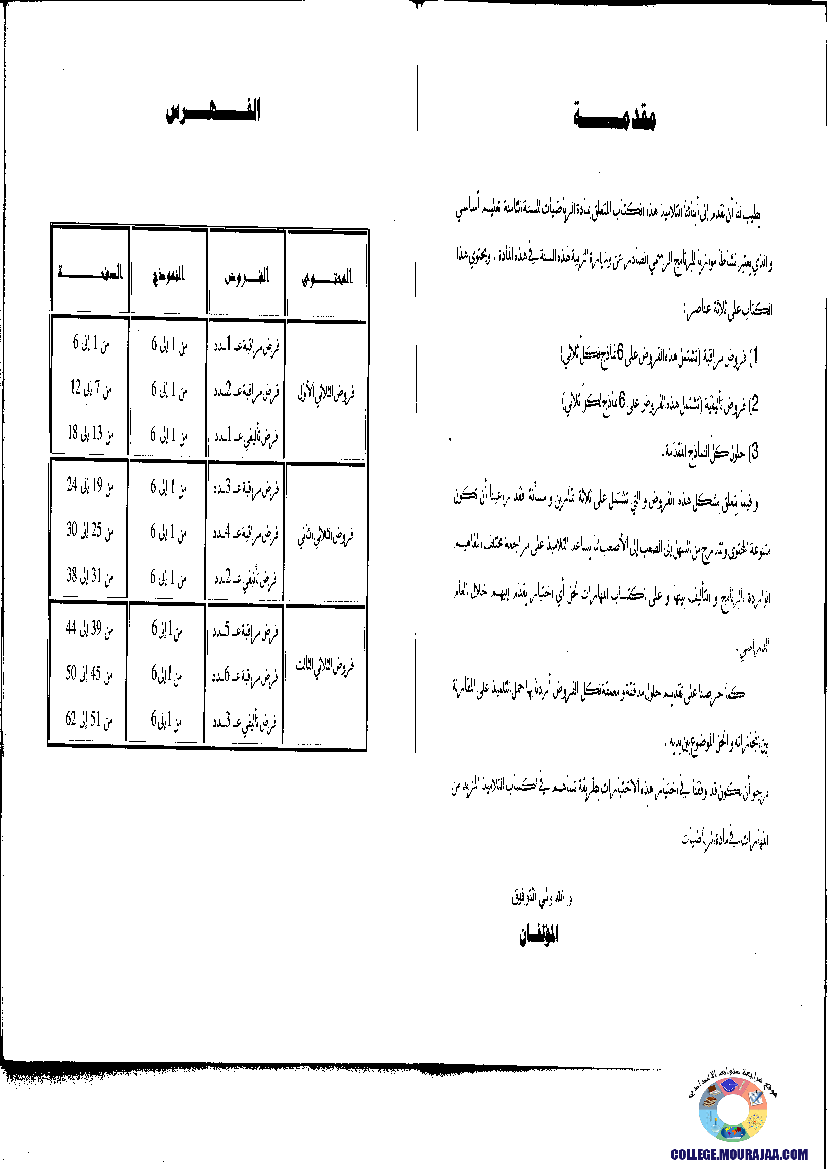 مقدمة
يطيب لنا أن نقدم إلى أبنائنا التلاميذ هذا الكتاب المتعلق بمادة الرياضيات للسنة الثامنة تعليم أساسي
والذي يعتبر نشاطا موازيا للبرنامج الرسمي الصادر عن وزارة التربية لهذه السنة في هذه المادة . ويحتوي هذا
الكتاب على ثلاثة عناصر:
1) فروض مراقبة (تشتمل هذه الفروض على 6 نماذج لكل ثلاثي)
2) فروض تأليفية (تشتمل هذه الفروض على 6 نماذج لكل ثلاثي)
3) حلول كل النماذج المقدمة.
و فيما يتعلق بشكل هذه الفروض و التي تشتمل على ثلاثة تمارين و مسألة فقد راعينا أن تكون
متنوعة المحتوى وتتدرج من السهل إلى الصعب إلى الأصعب مما يساعد التلاميذ على مراجعة مختلف المفاهيم
الواردة بالبرنامج و التأليف بينها و على اكتساب المهارات لحل أي اختبار يقدم إليهم خلال العام
الدراسي.
كما حرصنا على تقديم حلول مدققة و معمقة لكل الفروض أردنا بها حمل التلميذ على المقارنة
بين إنجازاته و الحل الموضوع بين يديه .
نرجو أن نكون قد وفقنا في اختيار هذه الاختبارات بطريقة تساهم في اكساب التلاميذ المزيد من
المهارات في مادة الرياضيات
و الله ولي التوفيق
المؤلفان
الفهرس
المحتوى الفروض النموذج الصفحة
فروض الثلاثي الأول
فرض مراقبة عـ1ـدد من 1 إلى 6 من 1 إلى 6
فرض مراقبة عـ2ـدد من 1 إلى 6 من 7 إلى 12
فرض تأليفي عـ1ـدد من 1 إلى 6 من 13 إلى 18
فروض الثلاثي الثاني
فرض مراقبة عـ3ـدد من 1 إلى 6 من 19 إلى 24
فرض مراقبة عـ4ـدد من 1 إلى 6 من 25 إلى 30
فرض تأليفي عـ2ـدد من 1 إلى 6 من 31 إلى 38
فروض الثلاثي الثالث
فرض مراقبة عـ5ـدد من 1 إلى 6 من 39 إلى 44
فرض مراقبة عـ6ـدد من 1 إلى 6 من 45 إلى 50
فرض تأليفي عـ3ـدد من 1 إلى 6 من 51 إلى 62
موقع مراجعة
COLLEGE.MOURAJAA.COM